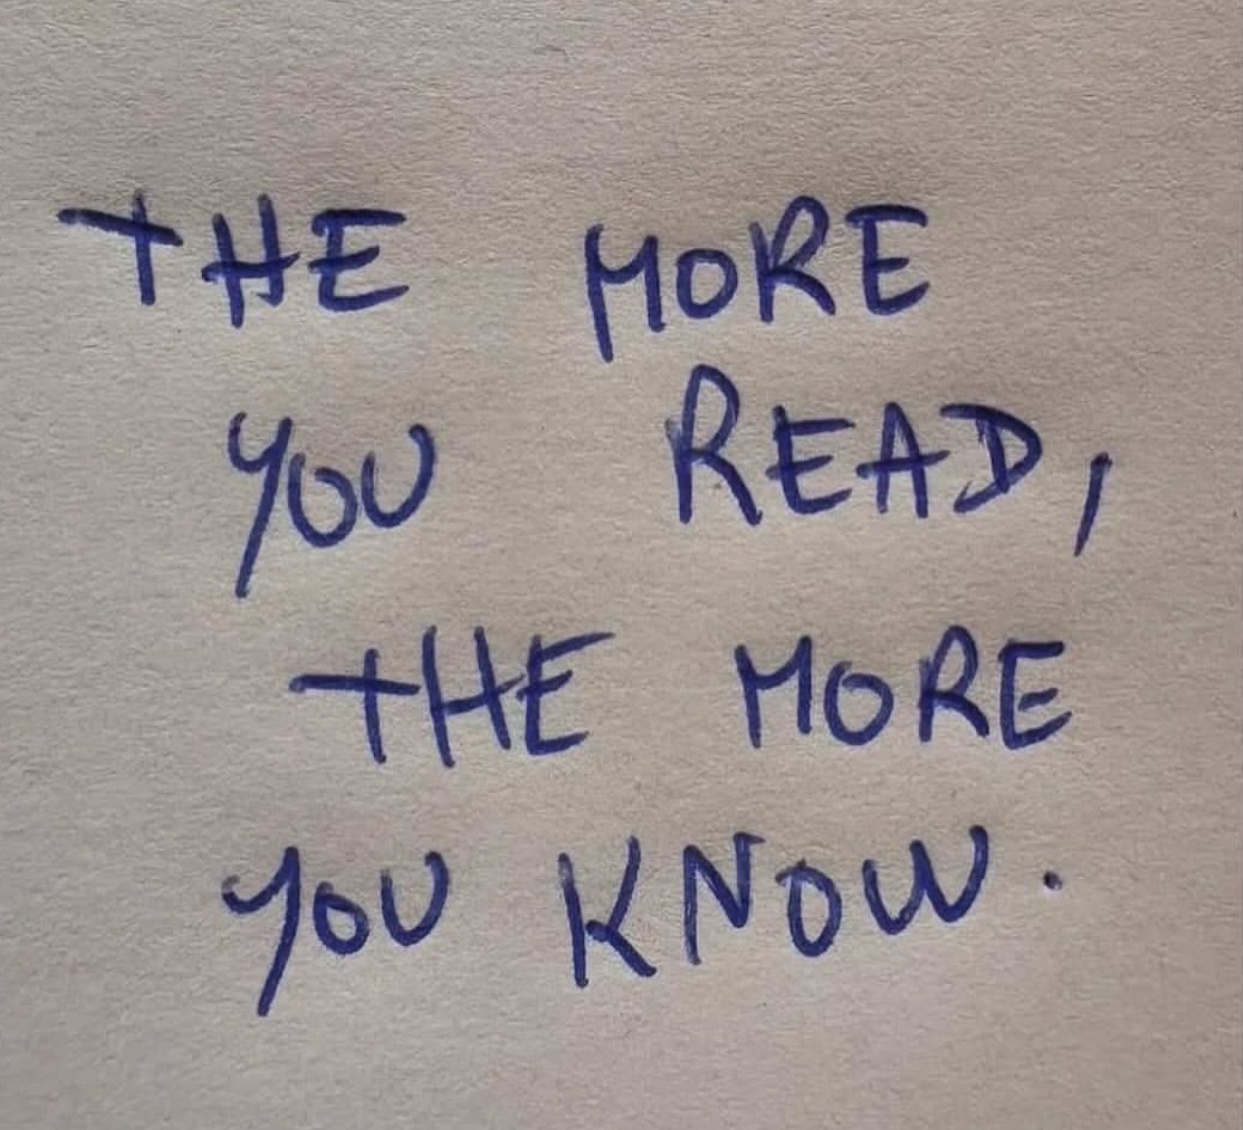 THE MORE
YOU READ,
THE MORE
YOU KNOW.